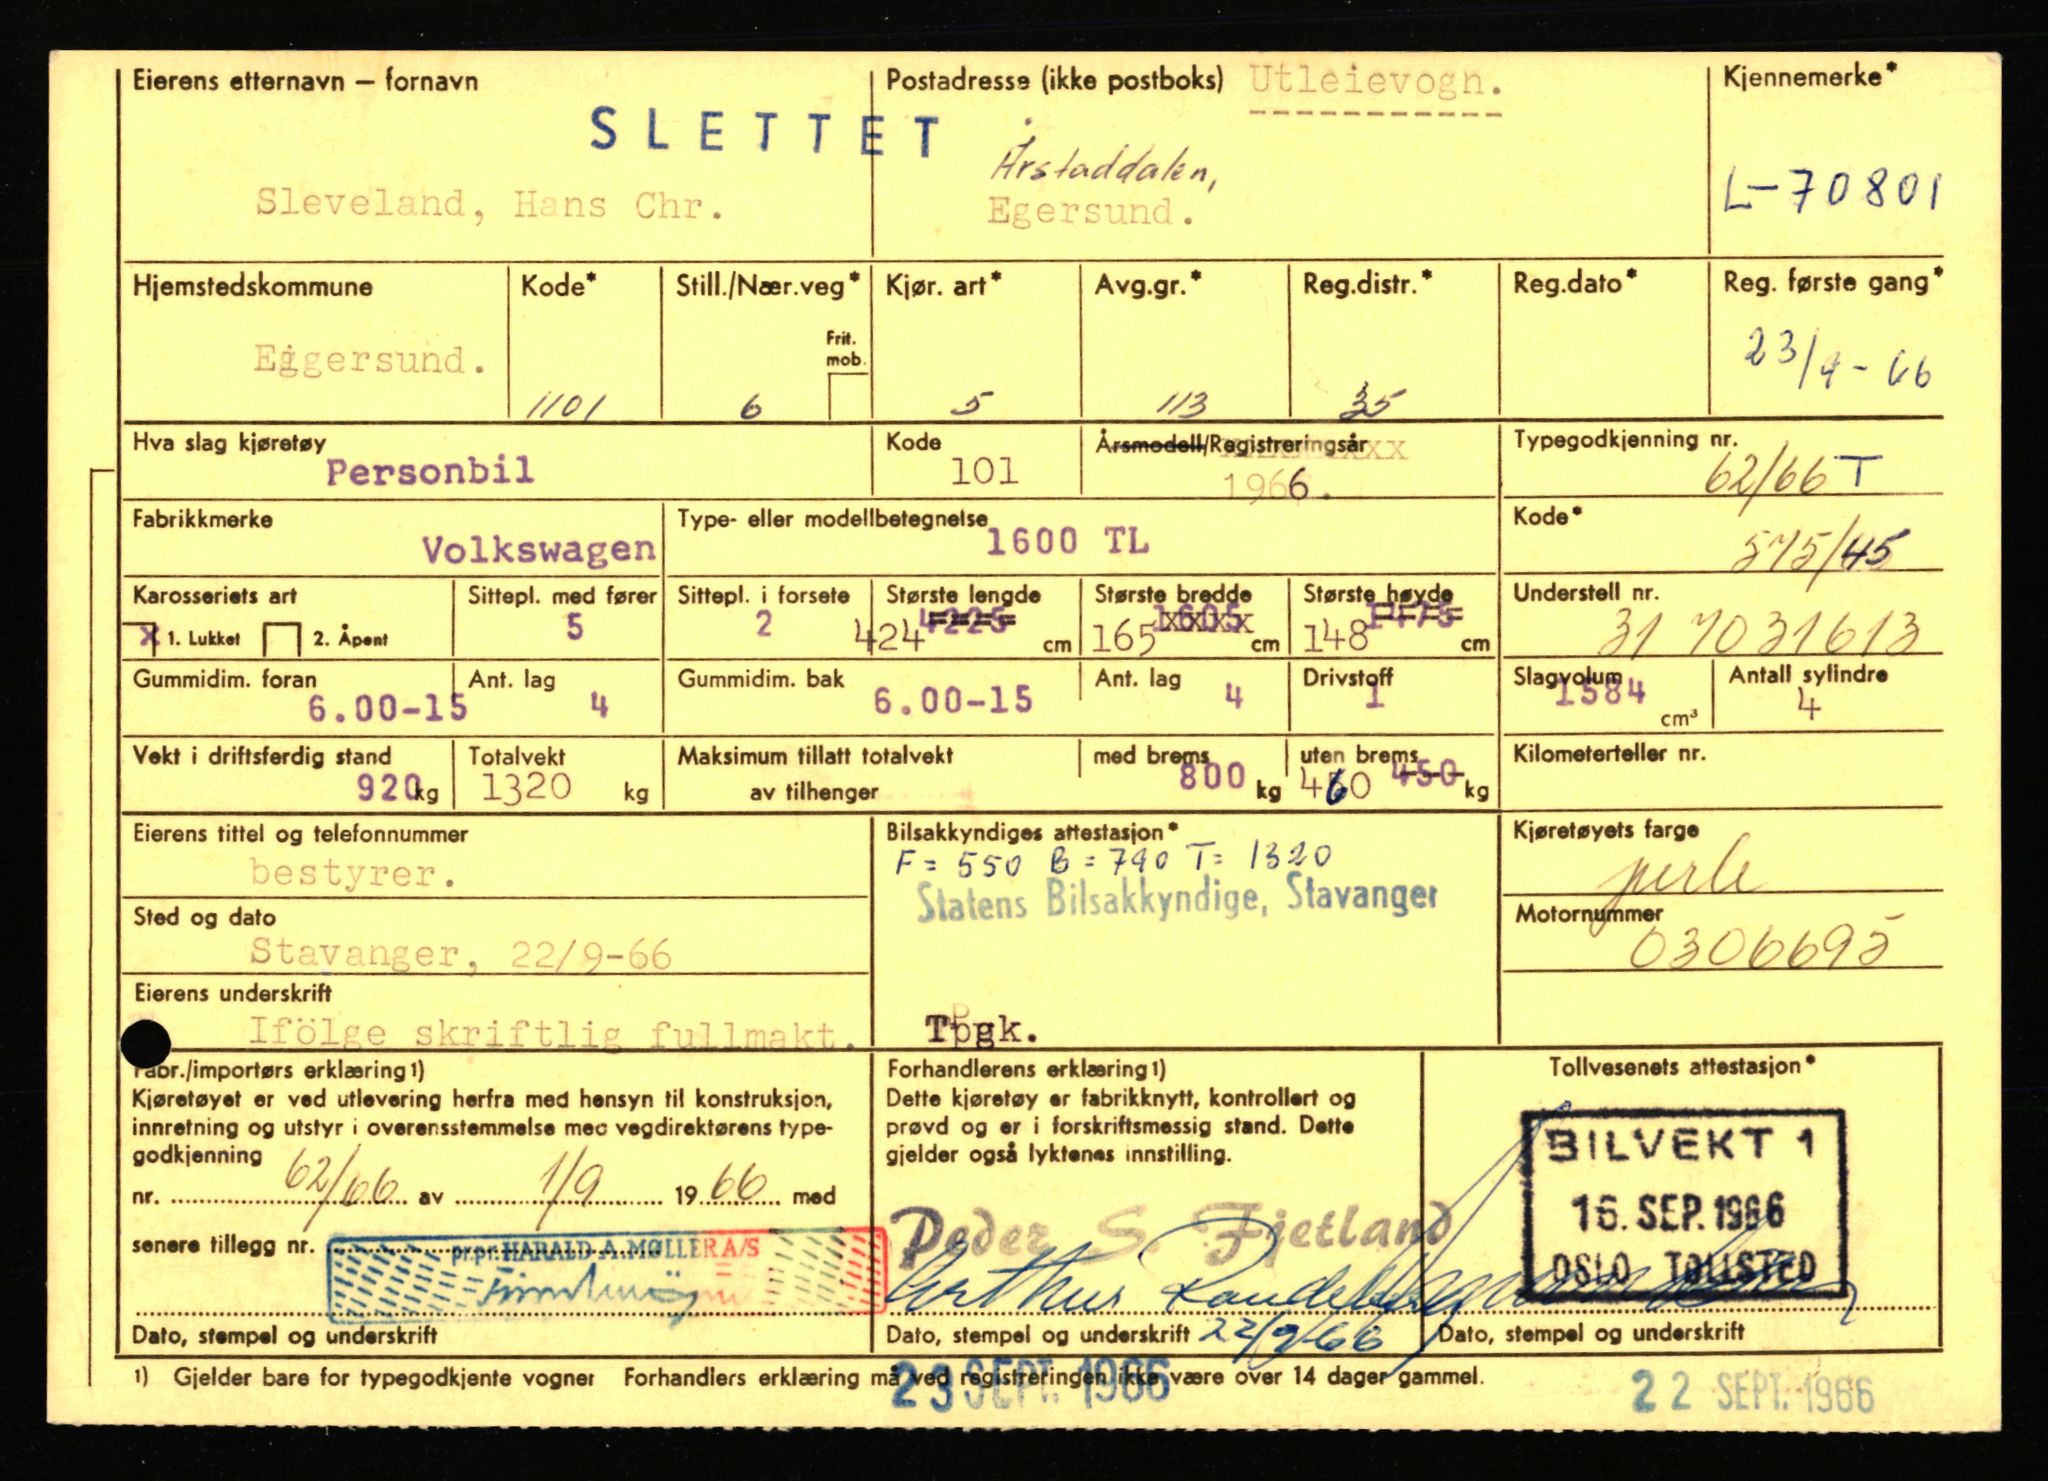 Eierens etternavn — fornavn
Postadresse (ikke postboks) Utleievogn.
Kjennemerke*
SLETTET
Årstaddalen,
Sleveland, Hans Chr.
Egersund.
L-70801
Hjemstedskommune
Kode*
Still./Nær.veg*
Kjør. art*
Avg.gr.*
Reg.distr.*
Reg.dato*
Reg. første gang*
Frit. mob.
Eigersund.
1101
6
5
113
35
23/9-66
Hva slag kjøretøy
Personbil
Kode
101
Årsmodell/Registreringsår
1966.
Typegodkjenning nr.
62/66 T
Fabrikkmerke
Volkswagen
Type- eller modellbetegnelse
1600 TL
Kode*
575/45
Karosseriets art
x 1. Lukket 2. Åpent
Sittepl. med fører
5
Sittepl. i forsete
2
Største lengde
424 4225 cm
Største bredde
165 1605 cm
Største høyde
148 1475 cm
Understell nr.
31 7031613
Gummidim. foran
6.00-15
Ant. lag
4
Gummidim. bak
6.00-15
Ant. lag
4
Drivstoff
1
Slagvolum
1584 cm³
Antall sylindre
4
Vekt i driftsferdig stand
920 kg
Totalvekt
1320 kg
Maksimum tillatt totalvekt
av tilhenger
med brems
800 kg
uten brems
460 450 kg
Kilometerteller nr.
Eierens tittel og telefonnummer
bestyrer.
Bilsakkyndiges attestasjon*
F = 550 B = 790 T = 1320
Statens Bilsakkyndige, Stavanger
Kjøretøyets farge
perle
Sted og dato
Stavanger, 22/9-66
Motornummer
0306695
Eierens underskrift
Ifölge skriftlig fullmakt.
Tpgk.
Fabr./importørs erklæring 1)
Kjøretøyet er ved utlevering herfra med hensyn til konstruksjon,
innretning og utstyr i overensstemmelse med vegdirektørens type-
godkjenning
nr. 62/66 av 1/9 1966 med
senere tillegg nr.
pr.pr. HARALD A. MØLLER A/S
Dato, stempel og underskrift
Forhandlerens erklæring 1)
Dette kjøretøy er fabrikknytt, kontrollert og
prøvd og er i forskriftsmessig stand. Dette
gjelder også lyktenes innstilling.
Peder S. Fjetland
Arthur Randeberg
Dato, stempel og underskrift 22/9-66
Tollvesenets attestasjon*
BILVEKT 1
16. SEP. 1966
OSLO TOLLSTED
Dato, stempel og underskrift
1) Gjelder bare for typegodkjente vogner Forhandlers erklæring må ved registreringen ikke være over 14 dager gammel.
23 SEPT. 1966
22 SEPT. 1966